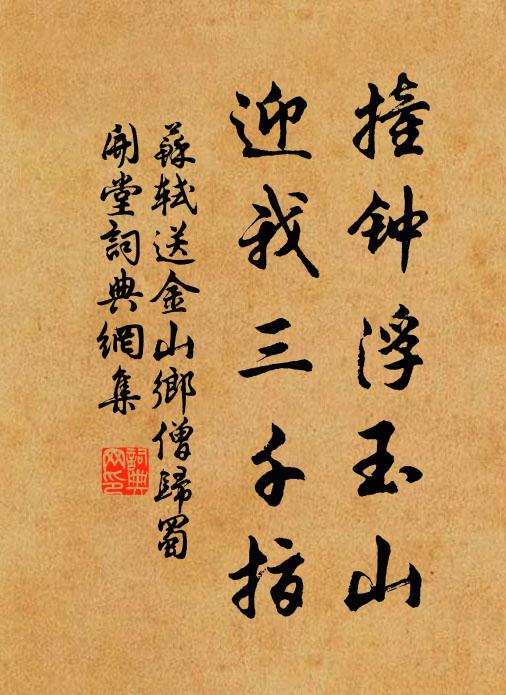 撞钟浮玉山
迎我三千指
蘇軾送金山鄉僧歸蜀
開堂詞典網集
詞典网印